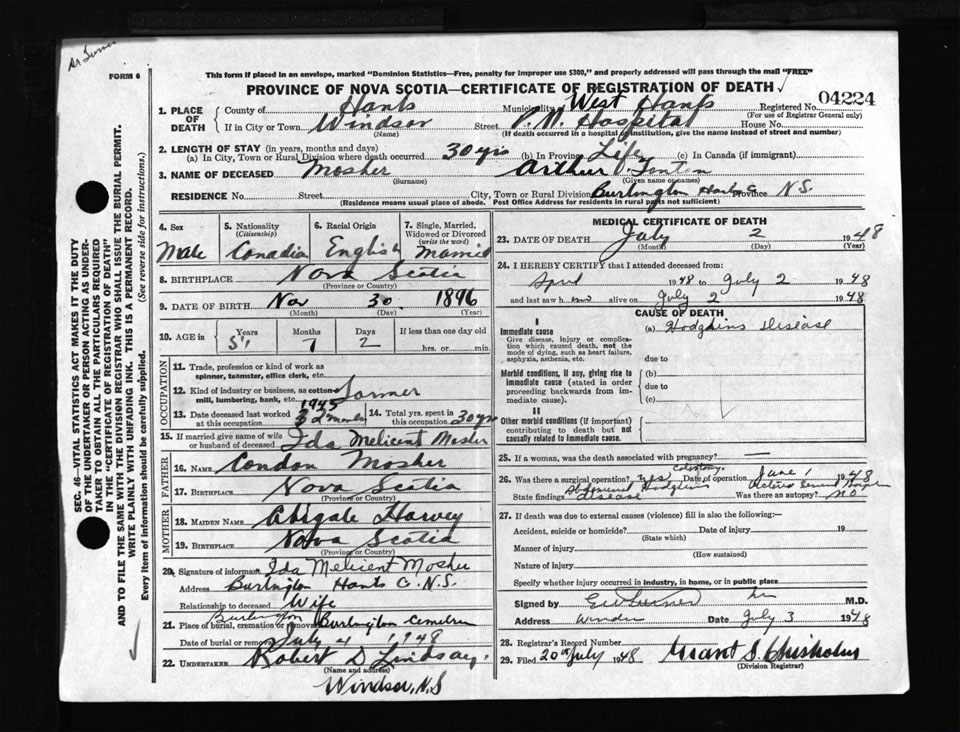 Dr Turner
FORM 6
This form if placed in an envelope, marked "Dominion Statistics—Free, penalty for improper use $300," and properly addressed will pass through the mail "FREE"
PROVINCE OF NOVA SCOTIA—CERTIFICATE OF REGISTRATION OF DEATH
1. PLACE OF DEATH County of Hants Municipality West Hants Registered No. 04224
(For use of Registrar General only)
If in City or Town Windsor Street P.M. Hospital House No.
(Name) (If death occurred in a hospital or institution, give the name instead of street and number)
2. LENGTH OF STAY (in years, months and days)
(a) In City, Town or Rural Division where death occurred 30 yrs (b) In Province Life (c) In Canada (if immigrant)
3. NAME OF DECEASED Mosher Arthur
(Surname) (Given name or names)
RESIDENCE No. Street City, Town or Rural Division Burlington Hants Co Province N.S.
(Residence means usual place of abode. Post Office Address for residents in rural parts not sufficient)
4. Sex 5. Nationality 6. Racial Origin 7. Single, Married,
(Citizenship) Widowed or Divorced
(write the word)
Male Canadian English Married
8. BIRTHPLACE Nova Scotia
(Province or Country)
9. DATE OF BIRTH Nov 30 1896
(Month) (Day) (Year)
10. AGE in Years Months Days If less than one day old
51 7 2 hrs. or min.
OCCUPATION
11. Trade, profession or kind of work as
spinner, teamster, office clerk, etc.
12. Kind of industry or business, as cotton
mill, lumbering, bank, etc. Farmer
13. Date deceased last worked 1945 14. Total yrs. spent in
at this occupation this occupation 30 yrs
15. If married give name of wife
or husband of deceased Ida Melicent Mosher
FATHER
16. NAME Condon Mosher
17. BIRTHPLACE Nova Scotia
(Province or Country)
MOTHER
18. MAIDEN NAME Abigale Harvey
19. BIRTHPLACE Nova Scotia
(Province or Country)
20. Signature of informant Ida Melicent Mosher
Address Burlington Hants Co. N.S.
Relationship to deceased Wife
Burlington
21. Place of burial, cremation or removal Burlington Cemetery
Date of burial or removal July 4 1948
22. UNDERTAKER Robert D Lindsay.
(Name and address)
Windsor, N.S
MEDICAL CERTIFICATE OF DEATH
23. DATE OF DEATH July 2 1948
(Month) (Day) (Year)
24. I HEREBY CERTIFY that I attended deceased from:
April 1948 to July 2 1948
and last saw him alive on July 2 1948
CAUSE OF DEATH
I
Immediate cause (a) Hodgkins Disease
Give disease, injury or complica-
tion which caused death, not the
mode of dying, such as heart failure,
asphyxia, asthenia, etc. due to
Morbid conditions, if any, giving rise to (b)
immediate cause (stated in order due to
proceeding backwards from im-
mediate cause). (c)
II
Other morbid conditions (if important)
contributing to death but not
causally related to immediate cause.
25. If a woman, was the death associated with pregnancy? —
26. Was there a surgical operation? yes Date of operation June 1 1948
State findings Abdominal Hodgkins disease Was there an autopsy? no
27. If death was due to external causes (violence) fill in also the following:—
Accident, suicide or homicide? Date of injury 19
(State which)
Manner of injury
(How sustained)
Nature of injury
Specify whether injury occurred in industry, in home, or in public place
Signed by M.D.
Address Windsor Date July 3 1948
28. Registrar's Record Number
29. Filed 20th July 1948 Grant S. Chisholm
(Division Registrar)
SEC. 46—VITAL STATISTICS ACT MAKES IT THE DUTY
OF THE UNDERTAKER OR PERSON ACTING AS UNDER-
TAKER TO OBTAIN ALL THE PARTICULARS REQUIRED
IN THE "CERTIFICATE OF REGISTRATION OF DEATH"
AND TO FILE THE SAME WITH THE DIVISION REGISTRAR WHO SHALL ISSUE THE BURIAL PERMIT.
WRITE PLAINLY WITH UNFADING INK. THIS IS A PERMANENT RECORD.
Every item of information should be carefully supplied. (See reverse side for instructions.)